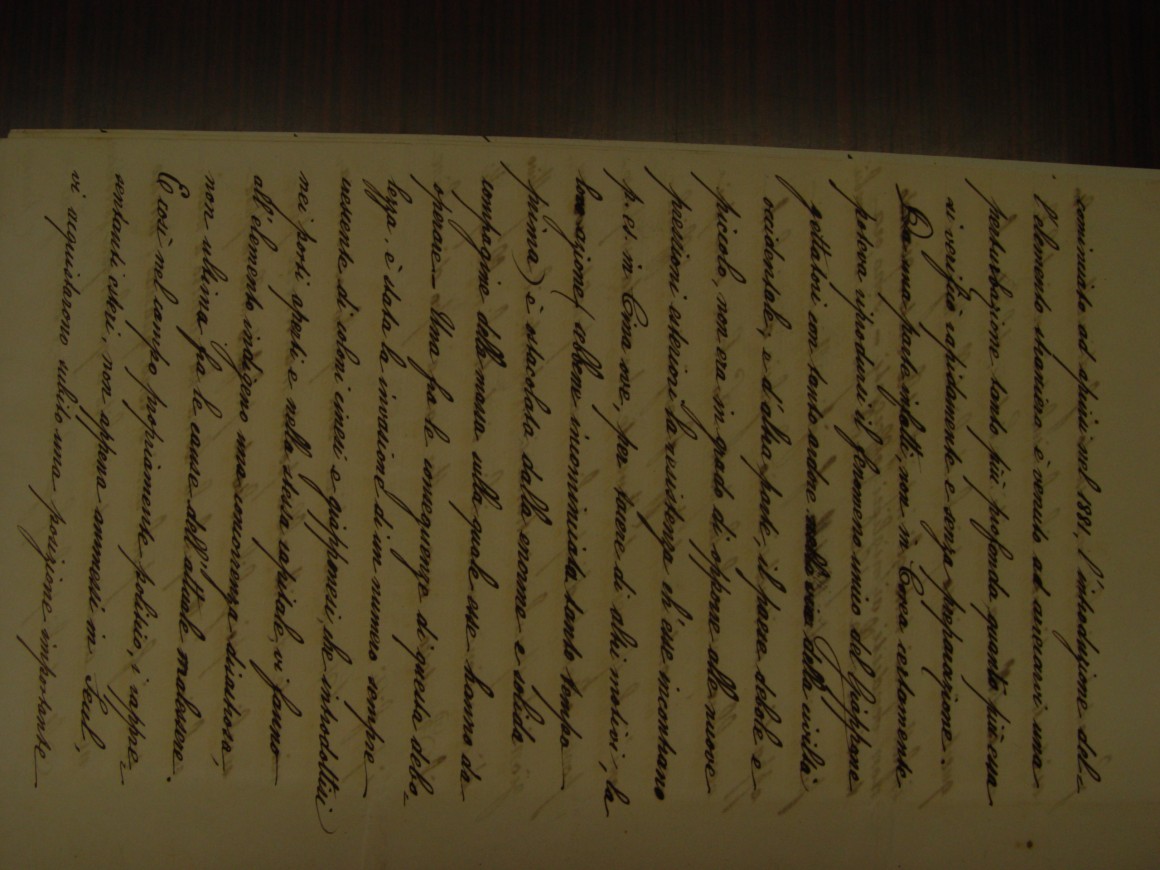 cominciato ad aprirsi nel 1881, l'introduzione del-
l'elemento straniero è venuta ad arrecarvi una
perturbazione tanto più profonda quanto più essa
si verificò rapidamente e senza preparazione.
Da una parte infatti non in Corea certamente
poteva riprodursi il fenomeno unico del Giappone
gettatosi con tanto ardore nelle vie della civiltà
occidentale, e d'altra parte, il paese debole e
piccolo, non era in grado di opporre alle nuove
pressioni esteriori la resistenza ch'esse incontrano
p. es. in Cina ove, per tacere di altri motivi, la
loro azione (sebbene incominciata tanto tempo
prima) è ostacolata dalla enorme e solida
compagine della massa sulla quale esse hanno da
operare. Una fra le conseguenze di questa debo-
lezza è stata la invasione di un numero sempre
crescente di coloni cinesi e giapponesi, che introdottisi
nei porti aperti e nella stessa capitale, vi fanno
all'elemento indigeno una concorrenza disastrosa,
non ultima fra le cause dell'attuale malessere.
E così nel campo propriamente politico, i rappre-
sentanti esteri, non appena ammessi in Seul,
vi acquistarono subito una posizione importante